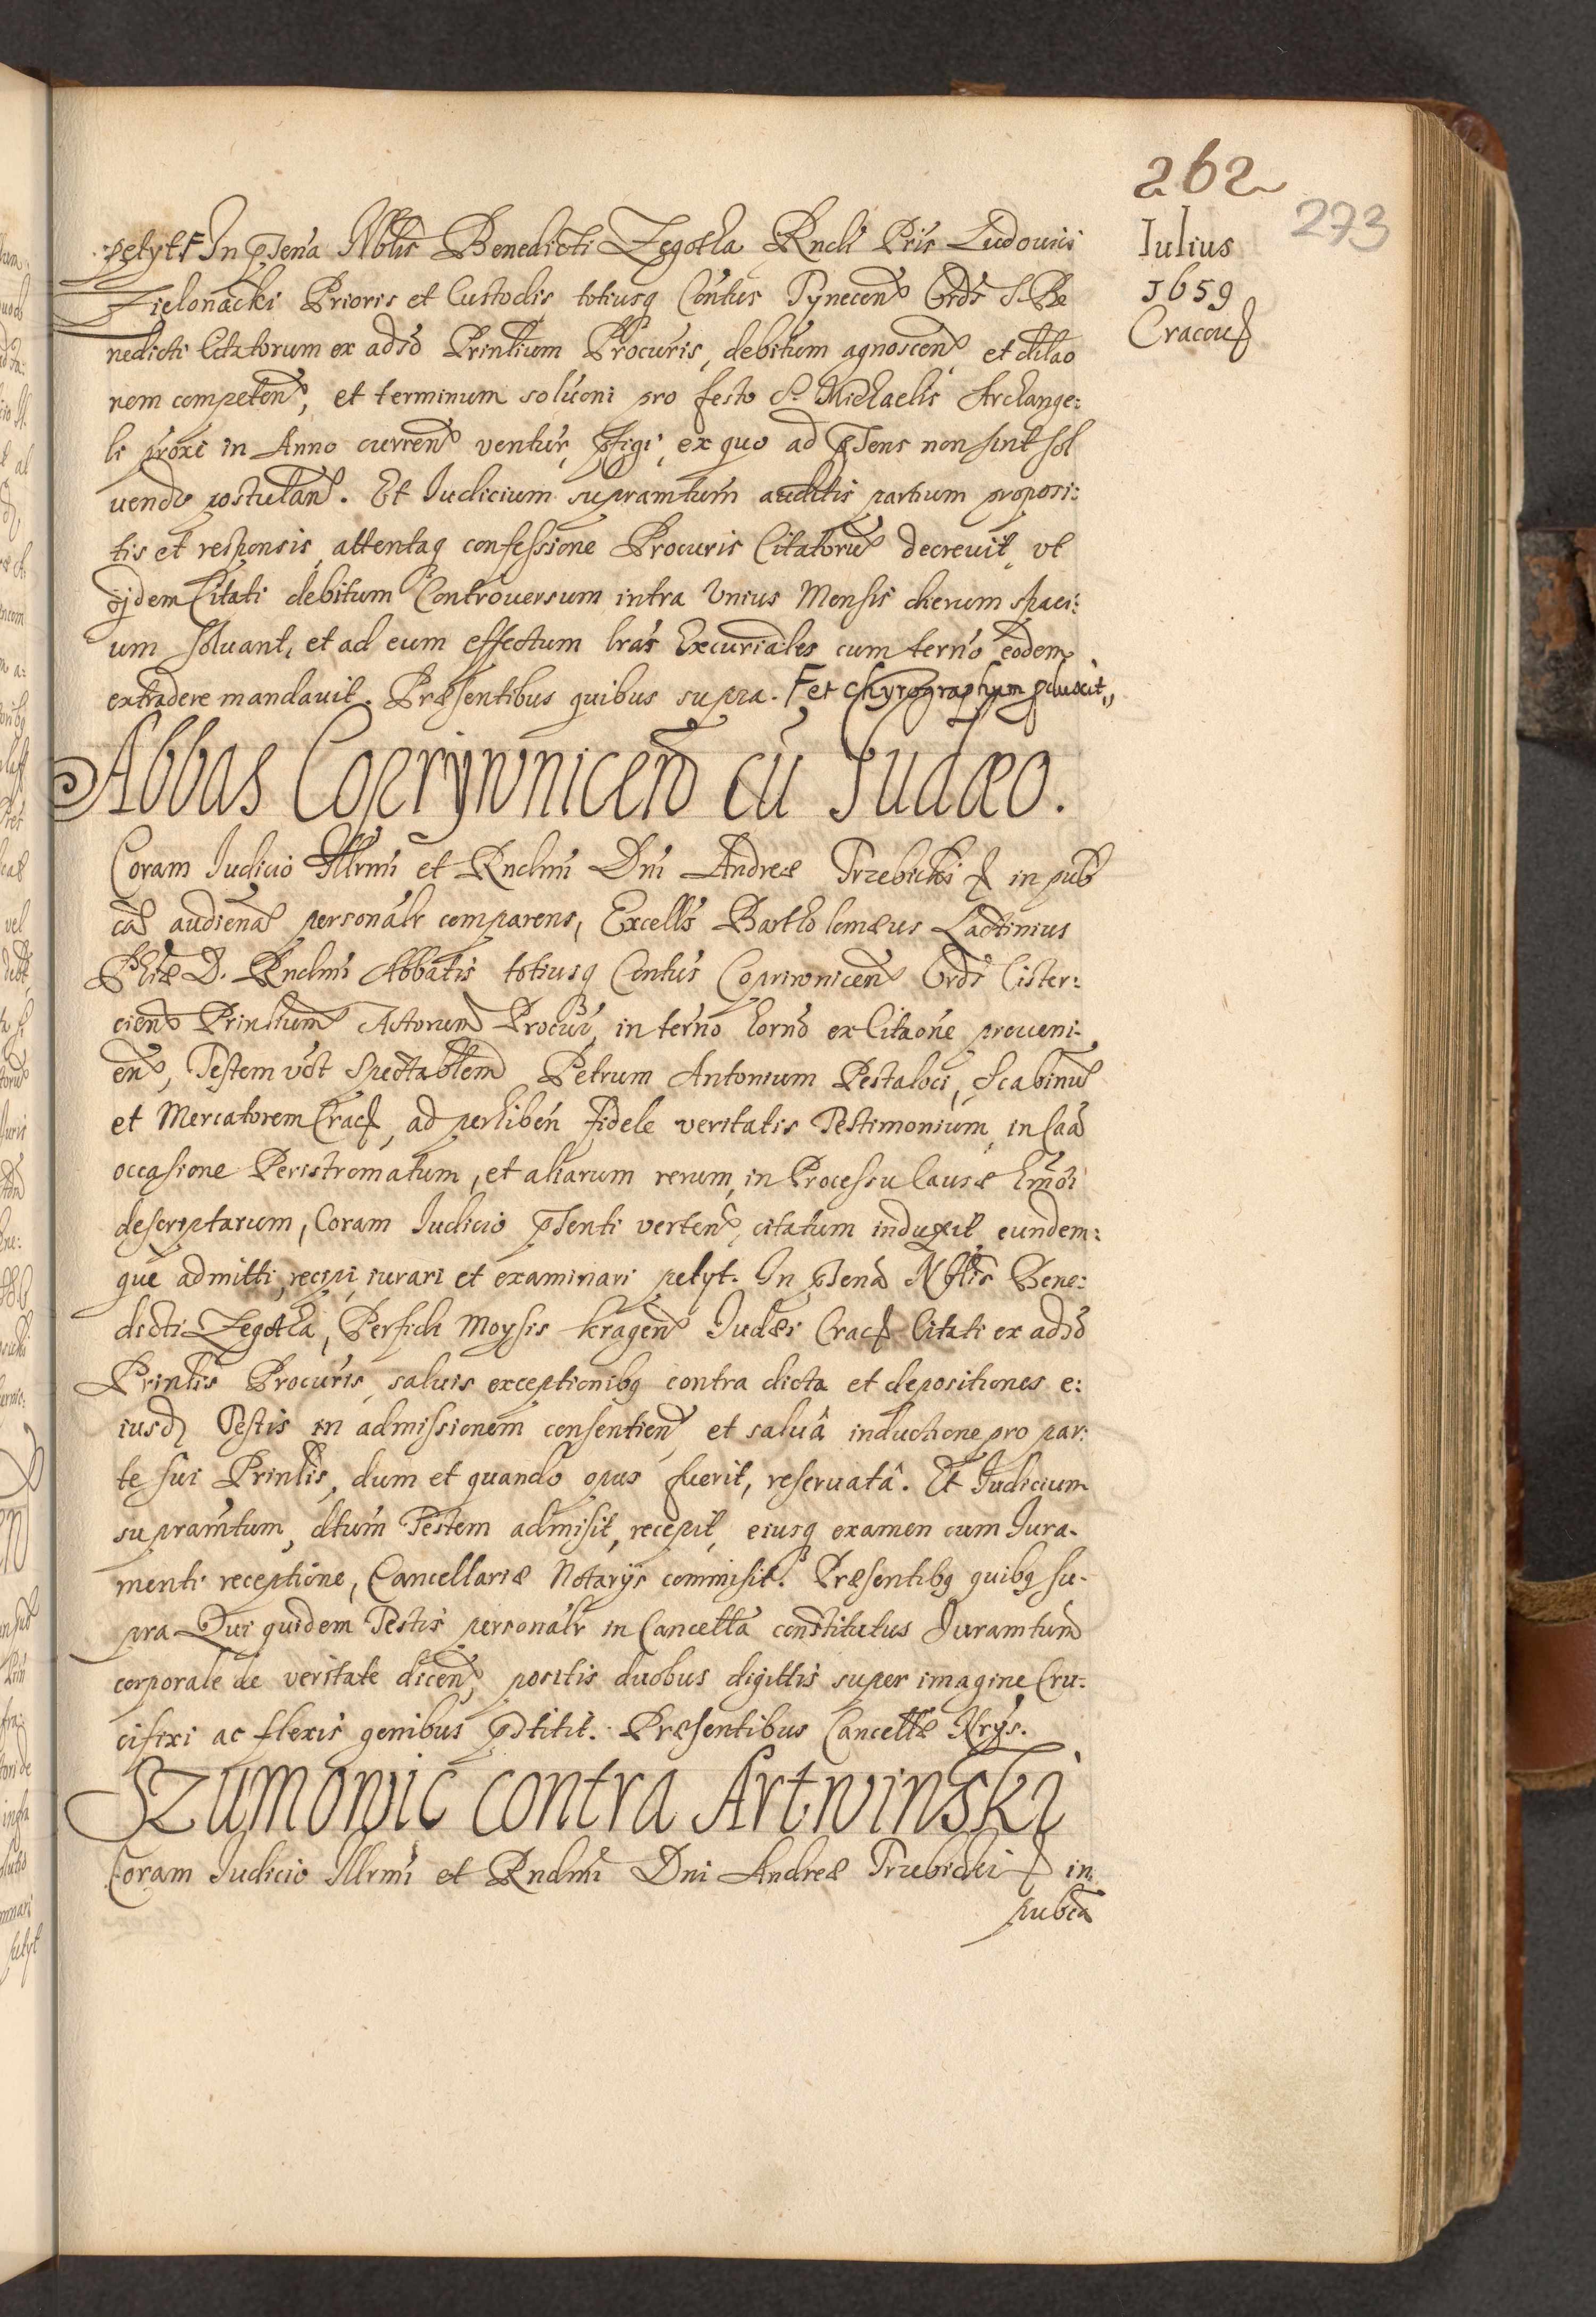 262
273
Iulius
1659
Cracou
petyt Ⱶ In pntia Nblis Benedicti Zegotha Rndi Pris Ludouici
Zielonacki Prioris et Custodis totiusq Contus Tynecen Ords S. Be
nedicti Citatorum ex adso Prinlium Procuris, debitum agnoscen et dilao
nem competen, et terminum soluoni pro festo S. Michaelis Archange:
li proxe in Anno curren ventur, pfigi, ex quo ad pnens non sint sol
uendo postulan. Et Iudicium supramtum auditis partium proposi:
tis et responsis, attentaq confessione Procuris Citatoru decreuit, vt
ijdem Citati debitum Controuersum intra Vnius Mensis dierum spaci:
um soluant, et ad eum effectum lras Excuriales cum terno eodem
extradere mandauit. Præsentibus quibus supra. Ⱶ et Chyrographum pduxit,,
Abbas Coprijwnicen cu Iudæo.
Coram Iudicio Illrmi et Rndmi Dni Andreæ Trzebicki in pub
ca audiena personalr comparens, Excells Bartholomæus Lactinius
Phiæ D. Rndmi Abbatis totiusq Contus Copriwnicen Ords Cister:
cien Prinlium Actorum Procur, in terno horno ex Citaone proueni-
en, Testem vt Spectablem Petrum Antonium Pestaloci, Scabinu
et Mercatorem Crac, ad perhiben fidele veritatis Testimonium, in Caa
occasione Peristromatum, et aliarum rerum, in Processu Causæ hmoi
descriptarum, Coram Iudicio pnenti verten, citatum induxit, eundem:
que admitti, recipi, iurari et examinari petyt. In pntia Nblis Bene:
dicti Zegotha, Perfidi Moysis kragen Iudæi Crac Citati ex adso
Prinlis Procuris, saluis exceptionibq contra dicta et depositiones e:
iusd Testis in admissionem consentien, et saluâ inductione pro par:
te sui Prinlis, dum et quando opus fuerit, reseruatâ. Et Iudicium
supramtum, dtum Testem admisit, recepit, eiusq examen cum Iura-
menti receptione, Cancellariæ Notarijs commisit. Præsentibq quibq su-
pra Qui quidem Testis personalr in Cancella constitutus Iuramtum
corporale de veritate dicen, positis duobus digittis super imagine Cru:
cifixi ac flexis genibus pstitit. Præsentibus Cancellæ Nrijs.
Szumowic contra Artwinski
Coram Iudicio Illrmi et Rndmi Dni Andreæ Trzebicki in
pubca